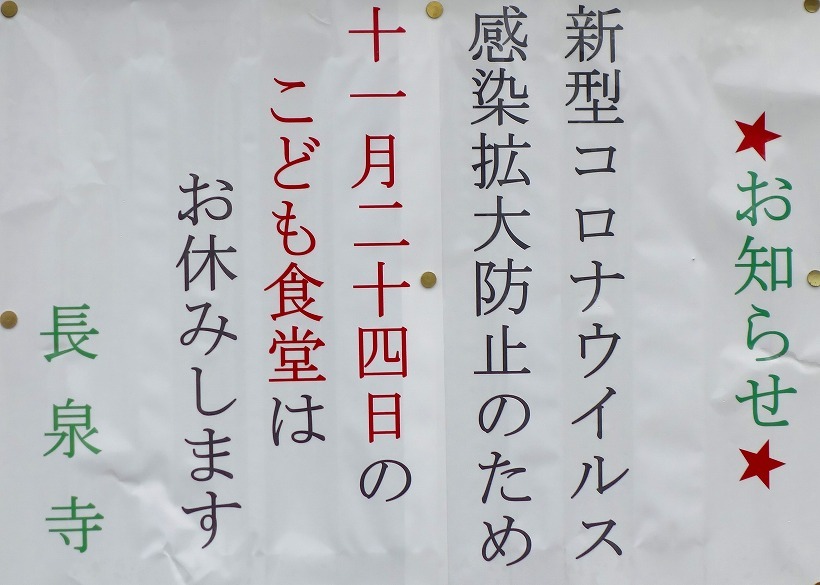 ★お知らせ★
新型コロナウイルス
感染拡大防止のため
十一月二十四日の
こども食堂は
お休みします
長泉寺